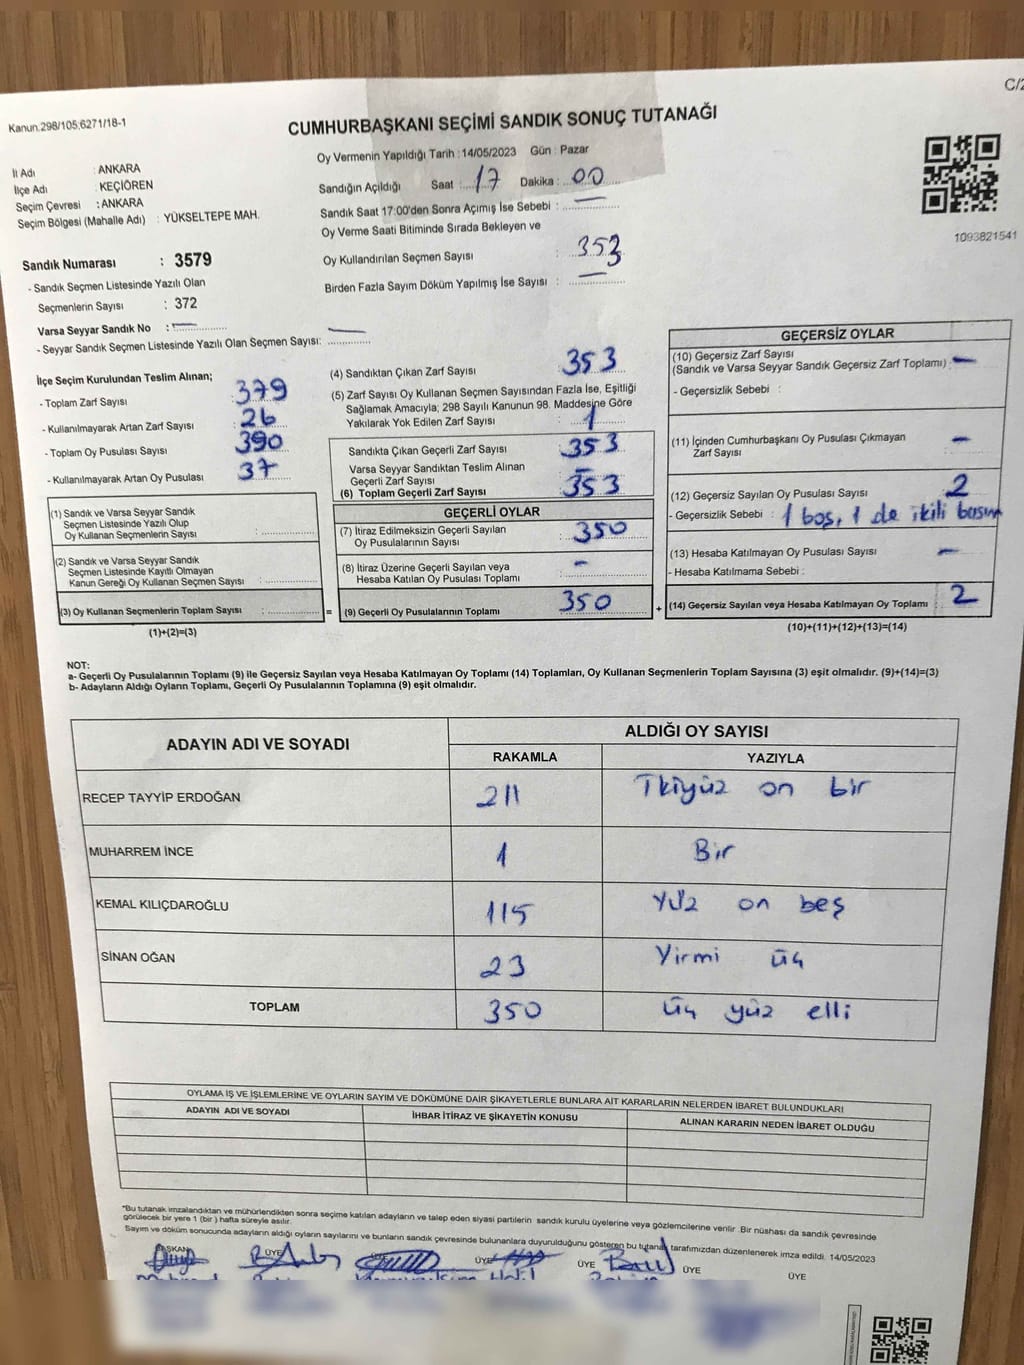 C/2
Kanun:298/105;6271/18-1
CUMHURBAŞKANI SEÇİMİ SANDIK SONUÇ TUTANAĞI
Oy Vermenin Yapıldığı Tarih : 14/05/2023 Gün : Pazar
İl Adı : ANKARA
İlçe Adı : KEÇİÖREN
Seçim Çevresi : ANKARA
Seçim Bölgesi (Mahalle Adı) : YÜKSELTEPE MAH.
Sandığın Açıldığı Saat : 17 Dakika : 00
Sandık Saat 17:00'den Sonra Açımış İse Sebebi : —
Oy Verme Saati Bitiminde Sırada Bekleyen ve
Oy Kullandırılan Seçmen Sayısı : 353
Birden Fazla Sayım Döküm Yapılmış İse Sayısı : —
1093821541
Sandık Numarası : 3579
- Sandık Seçmen Listesinde Yazılı Olan
Seçmenlerin Sayısı : 372
Varsa Seyyar Sandık No : —
- Seyyar Sandık Seçmen Listesinde Yazılı Olan Seçmen Sayısı: —
İlçe Seçim Kurulundan Teslim Alınan;
- Toplam Zarf Sayısı : 379
- Kullanılmayarak Artan Zarf Sayısı : 26
- Toplam Oy Pusulası Sayısı : 390
- Kullanılmayarak Artan Oy Pusulası : 37
(1) Sandık ve Varsa Seyyar Sandık
Seçmen Listesinde Yazılı Olup
Oy Kullanan Seçmenlerin Sayısı :
(2) Sandık ve Varsa Seyyar Sandık
Seçmen Listesinde Kayıtlı Olmayan
Kanun Gereği Oy Kullanan Seçmen Sayısı :
(3) Oy Kullanan Seçmenlerin Toplam Sayısı :
(1)+(2)=(3)
(4) Sandıktan Çıkan Zarf Sayısı : 353
(5) Zarf Sayısı Oy Kullanan Seçmen Sayısından Fazla İse, Eşitliği
Sağlamak Amacıyla; 298 Sayılı Kanunun 98. Maddesine Göre
Yakılarak Yok Edilen Zarf Sayısı : 1
Sandıkta Çıkan Geçerli Zarf Sayısı : 353
Varsa Seyyar Sandıktan Teslim Alınan
Geçerli Zarf Sayısı : —
(6) Toplam Geçerli Zarf Sayısı : 353
GEÇERLİ OYLAR
(7) İtiraz Edilmeksizin Geçerli Sayılan
Oy Pusulalarının Sayısı : 350
(8) İtiraz Üzerine Geçerli Sayılan veya
Hesaba Katılan Oy Pusulası Toplamı : —
= (9) Geçerli Oy Pusulalarının Toplamı : 350
GEÇERSİZ OYLAR
(10) Geçersiz Zarf Sayısı
(Sandık ve Varsa Seyyar Sandık Geçersiz Zarf Toplamı) : —
- Geçersizlik Sebebi :
(11) İçinden Cumhurbaşkanı Oy Pusulası Çıkmayan
Zarf Sayısı : —
(12) Geçersiz Sayılan Oy Pusulası Sayısı : 2
- Geçersizlik Sebebi : 1 boş, 1 de ikili basım
(13) Hesaba Katılmayan Oy Pusulası Sayısı : —
- Hesaba Katılmama Sebebi :
+ (14) Geçersiz Sayılan veya Hesaba Katılmayan Oy Toplamı : 2
(10)+(11)+(12)+(13)=(14)
NOT:
a- Geçerli Oy Pusulalarının Toplamı (9) ile Geçersiz Sayılan veya Hesaba Katılmayan Oy Toplamı (14) Toplamları, Oy Kullanan Seçmenlerin Toplam Sayısına (3) eşit olmalıdır. (9)+(14)=(3)
b- Adayların Aldığı Oyların Toplamı, Geçerli Oy Pusulalarının Toplamına (9) eşit olmalıdır.
ADAYIN ADI VE SOYADI
ALDIĞI OY SAYISI
RAKAMLA YAZIYLA
RECEP TAYYİP ERDOĞAN 211 İkiyüz on bir
MUHARREM İNCE 1 Bir
KEMAL KILIÇDAROĞLU 115 Yüz on beş
SİNAN OĞAN 23 Yirmi üç
TOPLAM 350 üç yüz elli
OYLAMA İŞ VE İŞLEMLERİNE VE OYLARIN SAYIM VE DÖKÜMÜNE DAİR ŞİKAYETLERLE BUNLARA AİT KARARLARIN NELERDEN İBARET BULUNDUKLARI
ADAYIN ADI VE SOYADI İHBAR İTİRAZ VE ŞİKAYETİN KONUSU ALINAN KARARIN NEDEN İBARET OLDUĞU
*Bu tutanak imzalandıktan ve mühürlendikten sonra seçime katılan adayların ve talep eden siyasi partilerin sandık kurulu üyelerine veya gözlemcilerine verilir. Bir nüshası da sandık çevresinde
görülecek bir yere 1 (bir) hafta süreyle asılır.
Sayım ve döküm sonucunda adayların aldığı oyların sayılarını ve bunların sandık çevresinde bulunanlara duyurulduğunu gösteren bu tutanak tarafımızdan düzenlenerek imza edildi. 14/05/2023
BAŞKAN ÜYE ÜYE ÜYE ÜYE ÜYE ÜYE